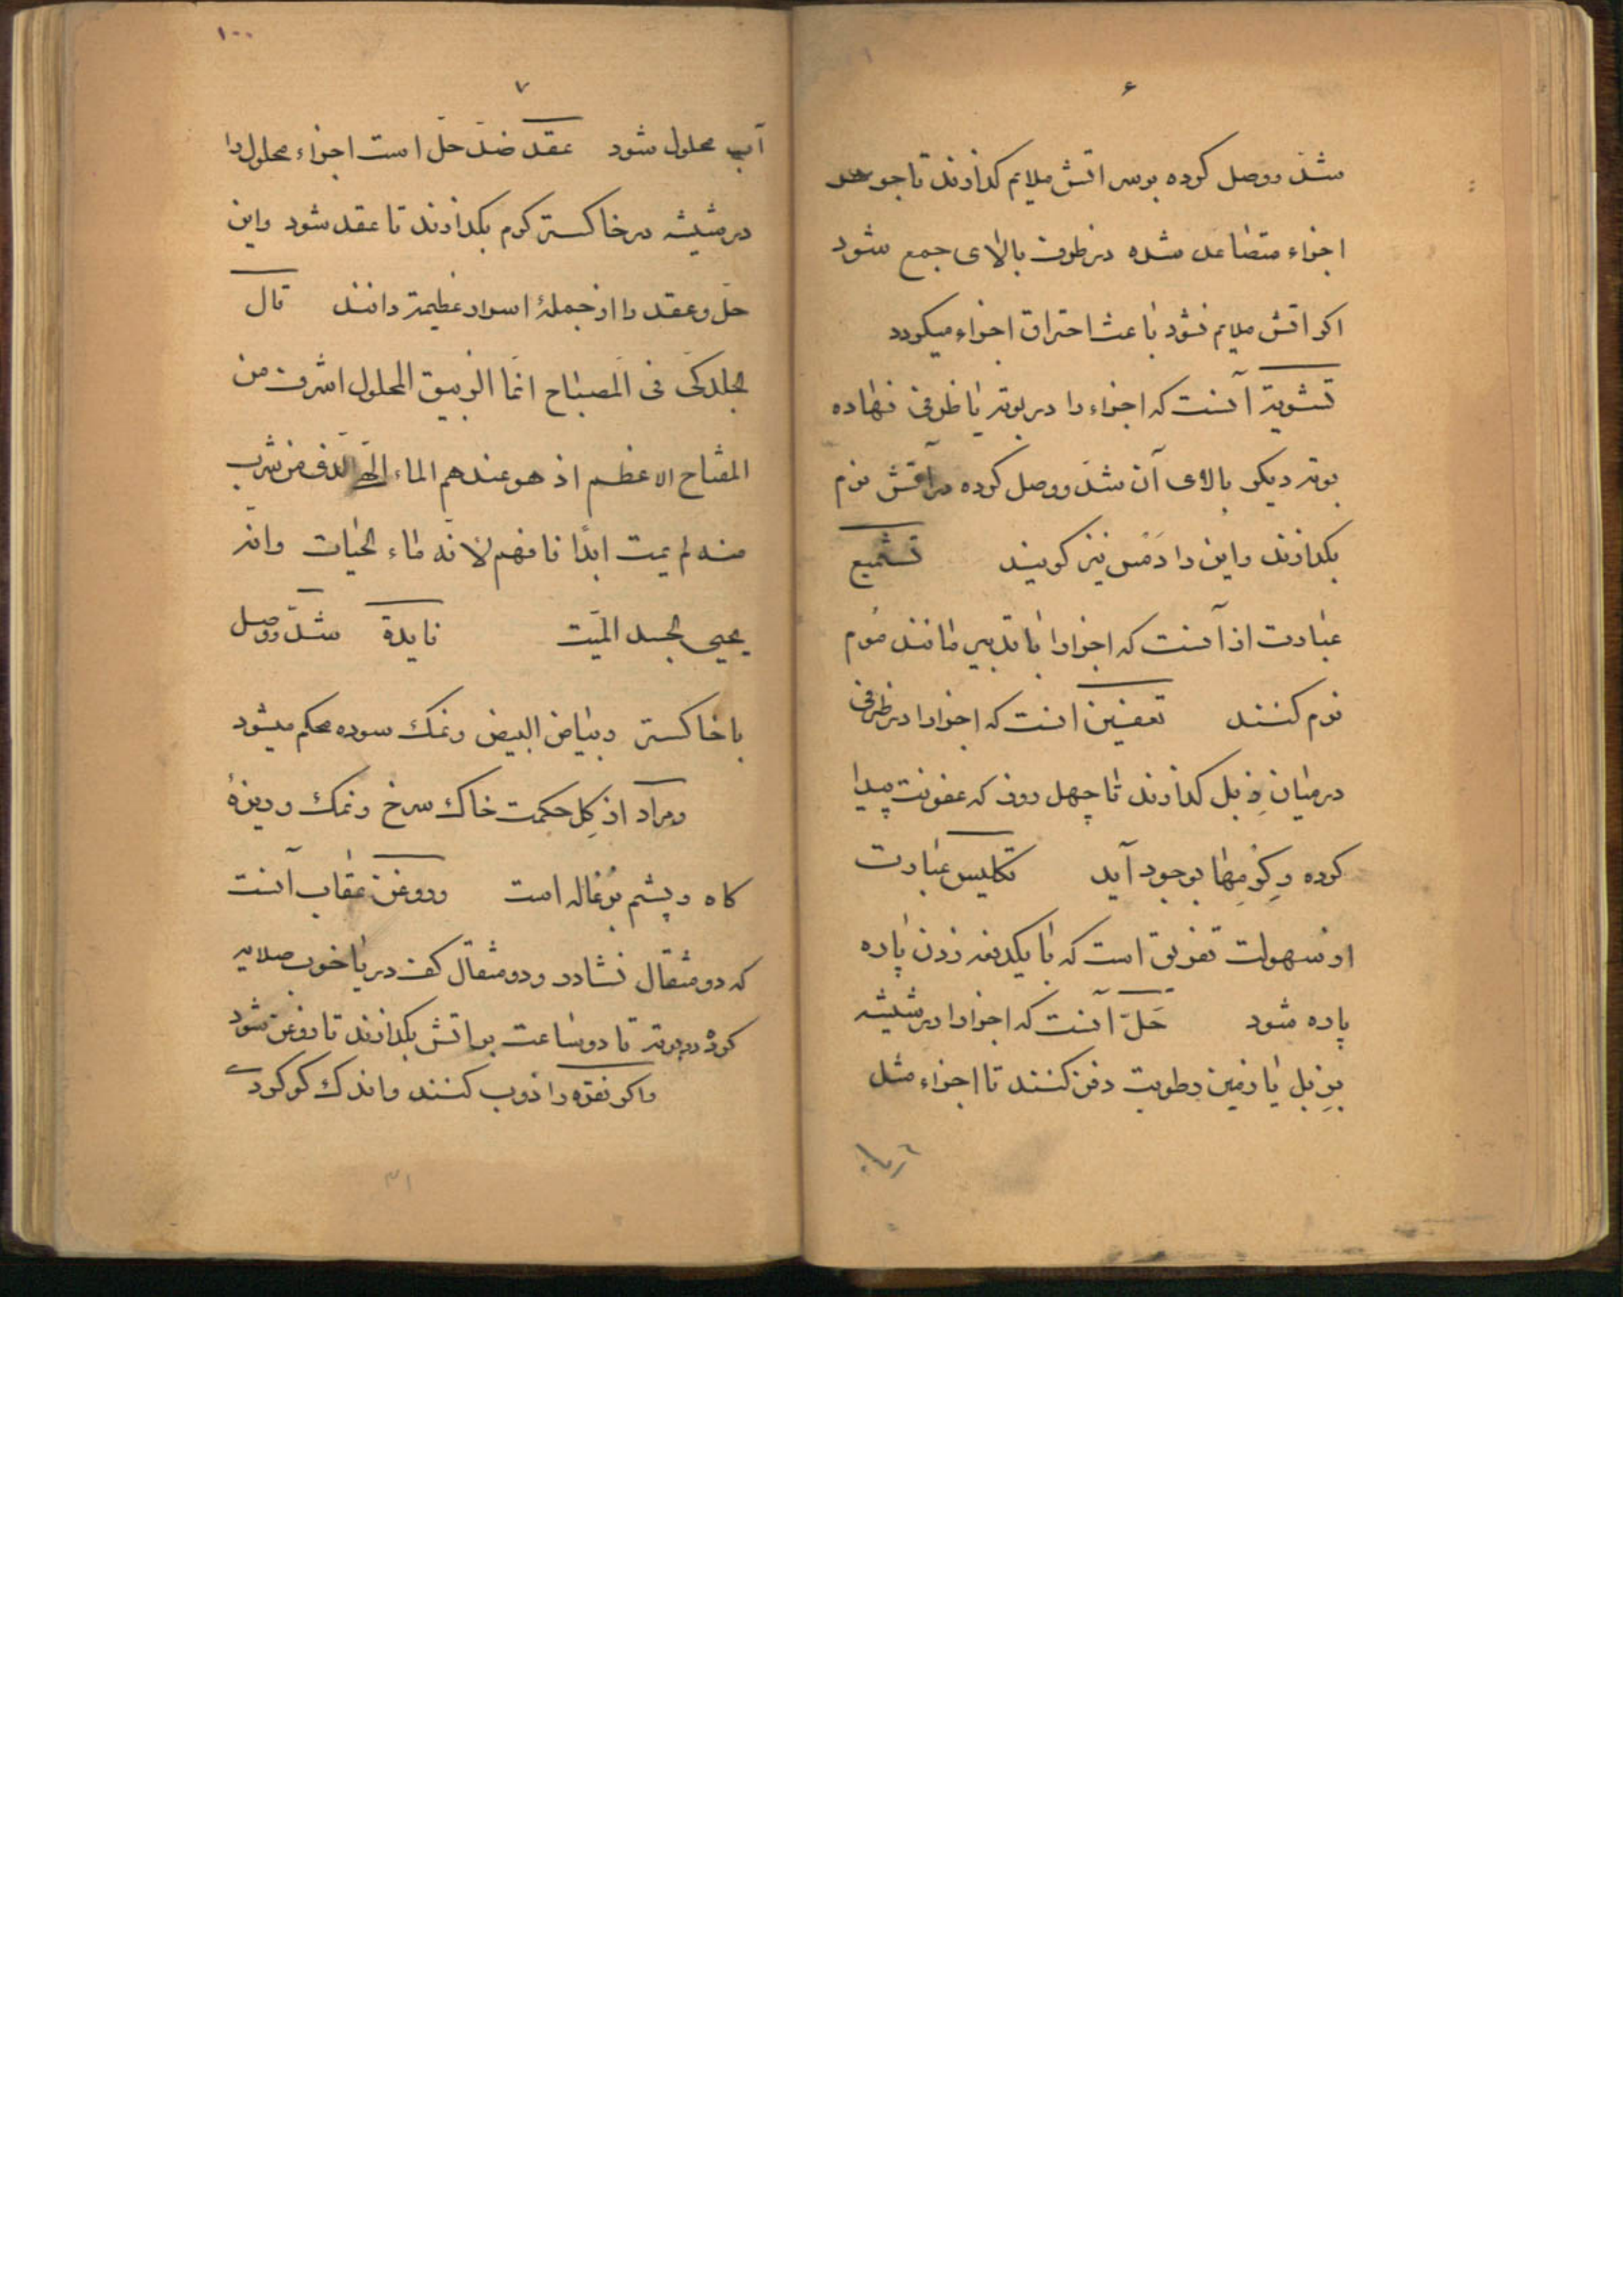 ۶
شدّ و وصل کرده بوسر اتش ملایم کذارند تا جوهر
اجزاء متصاعد شده در ظرف بالای جمع شود
اکر اتش ملایم نشود باعث احتراق اجزاء میکردد
تشویة آنست که اجزاء را در بوته یا ظرفی نهاده
بوته دیکر بالای آن شدّ و وصل کرده در آتش نرم
بکذارند و این را دَمَس نیز کویند تشمیع
عبارت از آنست که اجزا را با تدبیر مانند مُوم
نرم کنند تعفین انست که اجزا را در ظرفی
در میان زِبل کذارند تا چهل روز که عفونت پیدا
کرده و کِرمها بوجود آید تکلیس عبارت
از سُهولت تفریق است که با یکدفعه زدن پاره
پاره شود حَلّ آنست که اجزا را در شیشه
بزبل یا زمین رطوبت دفن کنند تا اجزاء مثل
۱۰۰
۷
آب محلول شود عقد ضدّ حلّ است اجزاء محلول را
در شیشه در خاکستر کرم بکذارند تا عقد شود و این
حلّ و عقد را از جملۀ اسرار عظیمة دانند قال
الجلدکی فی المصباح انّما الزیبق المحلول اشرف من
المفتاح الاعظم اذ هو عندهم الماء الالهی الذی من شرب
منه لم یمت ابدًا فافهم لانّه ماء الحیات و انّه
یحیی الجسد المیّت فایدة شدّ و وصل
با خاکستر و بیاض البیض و نمک سوده محکم میشود
و مراد از کِل حکمت خاک سرخ و نمک و ریزۀ
کاه و پشم بُزغاله است و روغن عقاب آنست
که دو مثقال نشادر و دو مثقال کف دریا خوب صلایه
کرده در بوته تا دو ساعت بر اتش بکذارند تا روغن شود
و اکر نقره را ذوب کنند و اندک کوکرد
۳۱